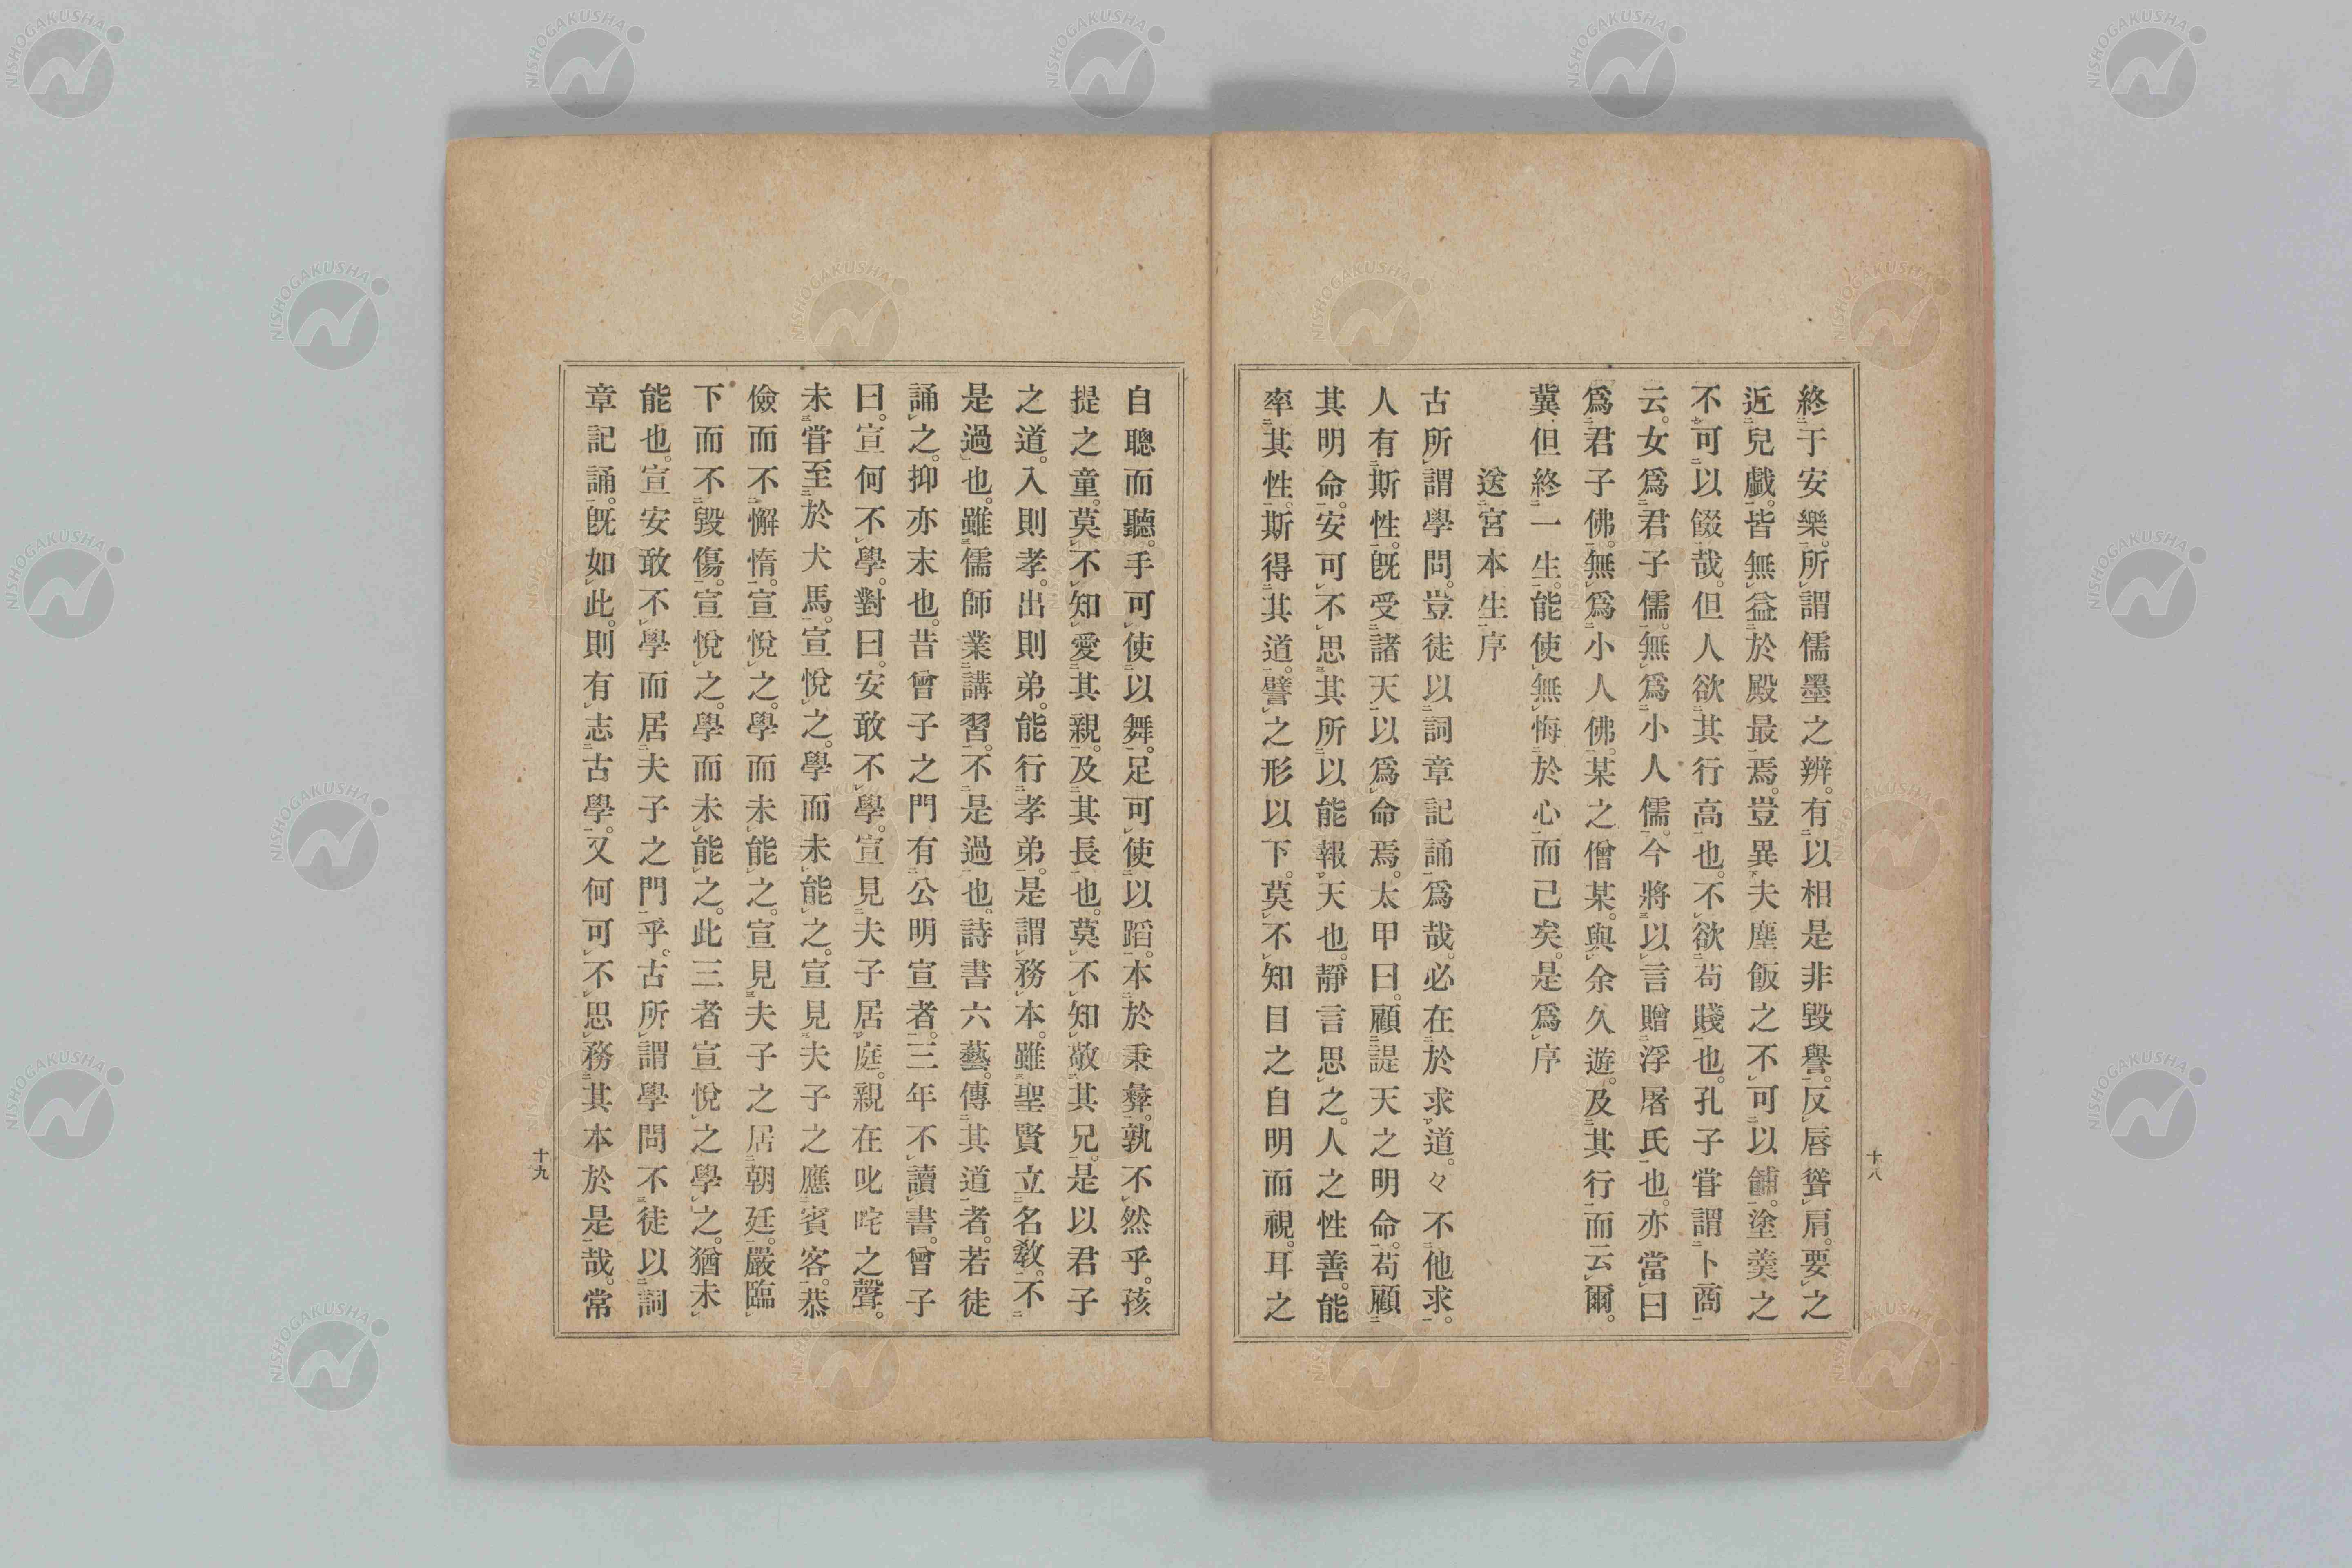 終于安樂。所謂儒墨之辨。有以相是非毀譽。反唇聳肩。要之
近兒戲。皆無益於殿最焉。豈異夫塵飯之不可以餔。塗羹之
不可以餟哉。但人欲其行高也。不欲苟賤也。孔子嘗謂卜商
云。女爲君子儒。無爲小人儒。今將以言贈浮屠氏也。亦當曰
爲君子佛。無爲小人佛。某之僧某。與余久遊。及其行而云爾。
冀但終一生。能使無悔於心而已矣。是爲序
送宮本生序
古所謂學問。豈徒以詞章記誦爲哉。必在於求道。々不他求。
人有斯性。既受諸天以爲命焉。太甲曰。顧諟天之明命。苟顧
其明命。安可不思其所以能報天也。靜言思之。人之性善。能
率其性。斯得其道。譬之形以下。莫不知目之自明而視。耳之
十八
自聰而聽。手可使以舞。足可使以蹈。本於秉彝。孰不然乎。孩
提之童。莫不知愛其親。及其長也。莫不知敬其兄。是以君子
之道。入則孝。出則弟。能行孝弟。是謂務本。雖聖賢立名教。不
是過也。雖儒師業講習。不是過也。詩書六藝。傳其道者。若徒
誦之。抑亦末也。昔曾子之門有公明宣者。三年不讀書。曾子
曰。宣何不學。對曰。安敢不學。宣見夫子居庭。親在叱咤之聲。
未嘗至於犬馬。宣悅之。學而未能之。宣見夫子之應賓客。恭
儉而不懈惰。宣悅之。學而未能之。宣見夫子之居朝廷。嚴臨
下而不毀傷。宣悅之。學而未能之。此三者宣悅之學之。猶未
能也。宣安敢不學而居夫子之門乎。古所謂學問不徒以詞
章記誦。既如此。則有志古學。又何可不思務其本於是哉。常
十九
NISHOGAKUSHA